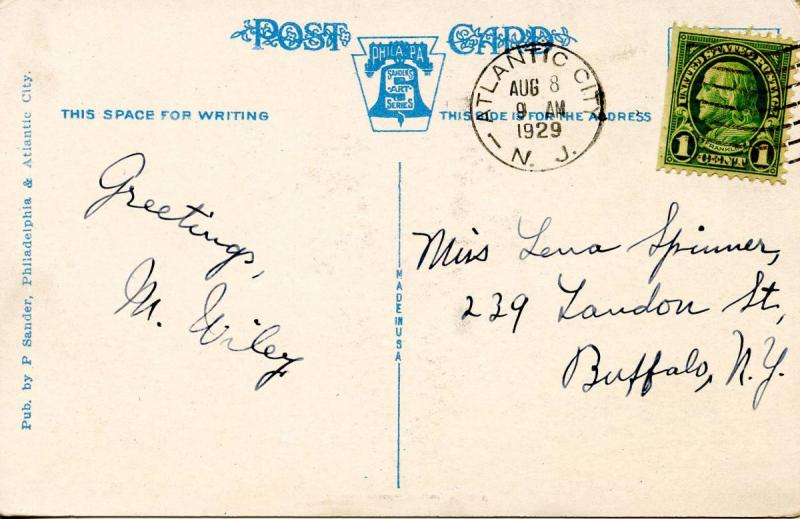 POST CARD
PHILA PA
SANDERS
ART
SERIES
ATLANTIC CITY
AUG 8
9 AM
1929
N. J.
1
UNITED STATES POSTAGE
FRANKLIN
1 CENT 1
THIS SPACE FOR WRITING
THIS SIDE IS FOR THE ADDRESS
Greetings,
M. Wiley
Miss Lena Spinner,
239 Landon St,
Buffalo, N.Y.
MADE IN USA
Pub. by P Sander, Philadelphia & Atlantic City.